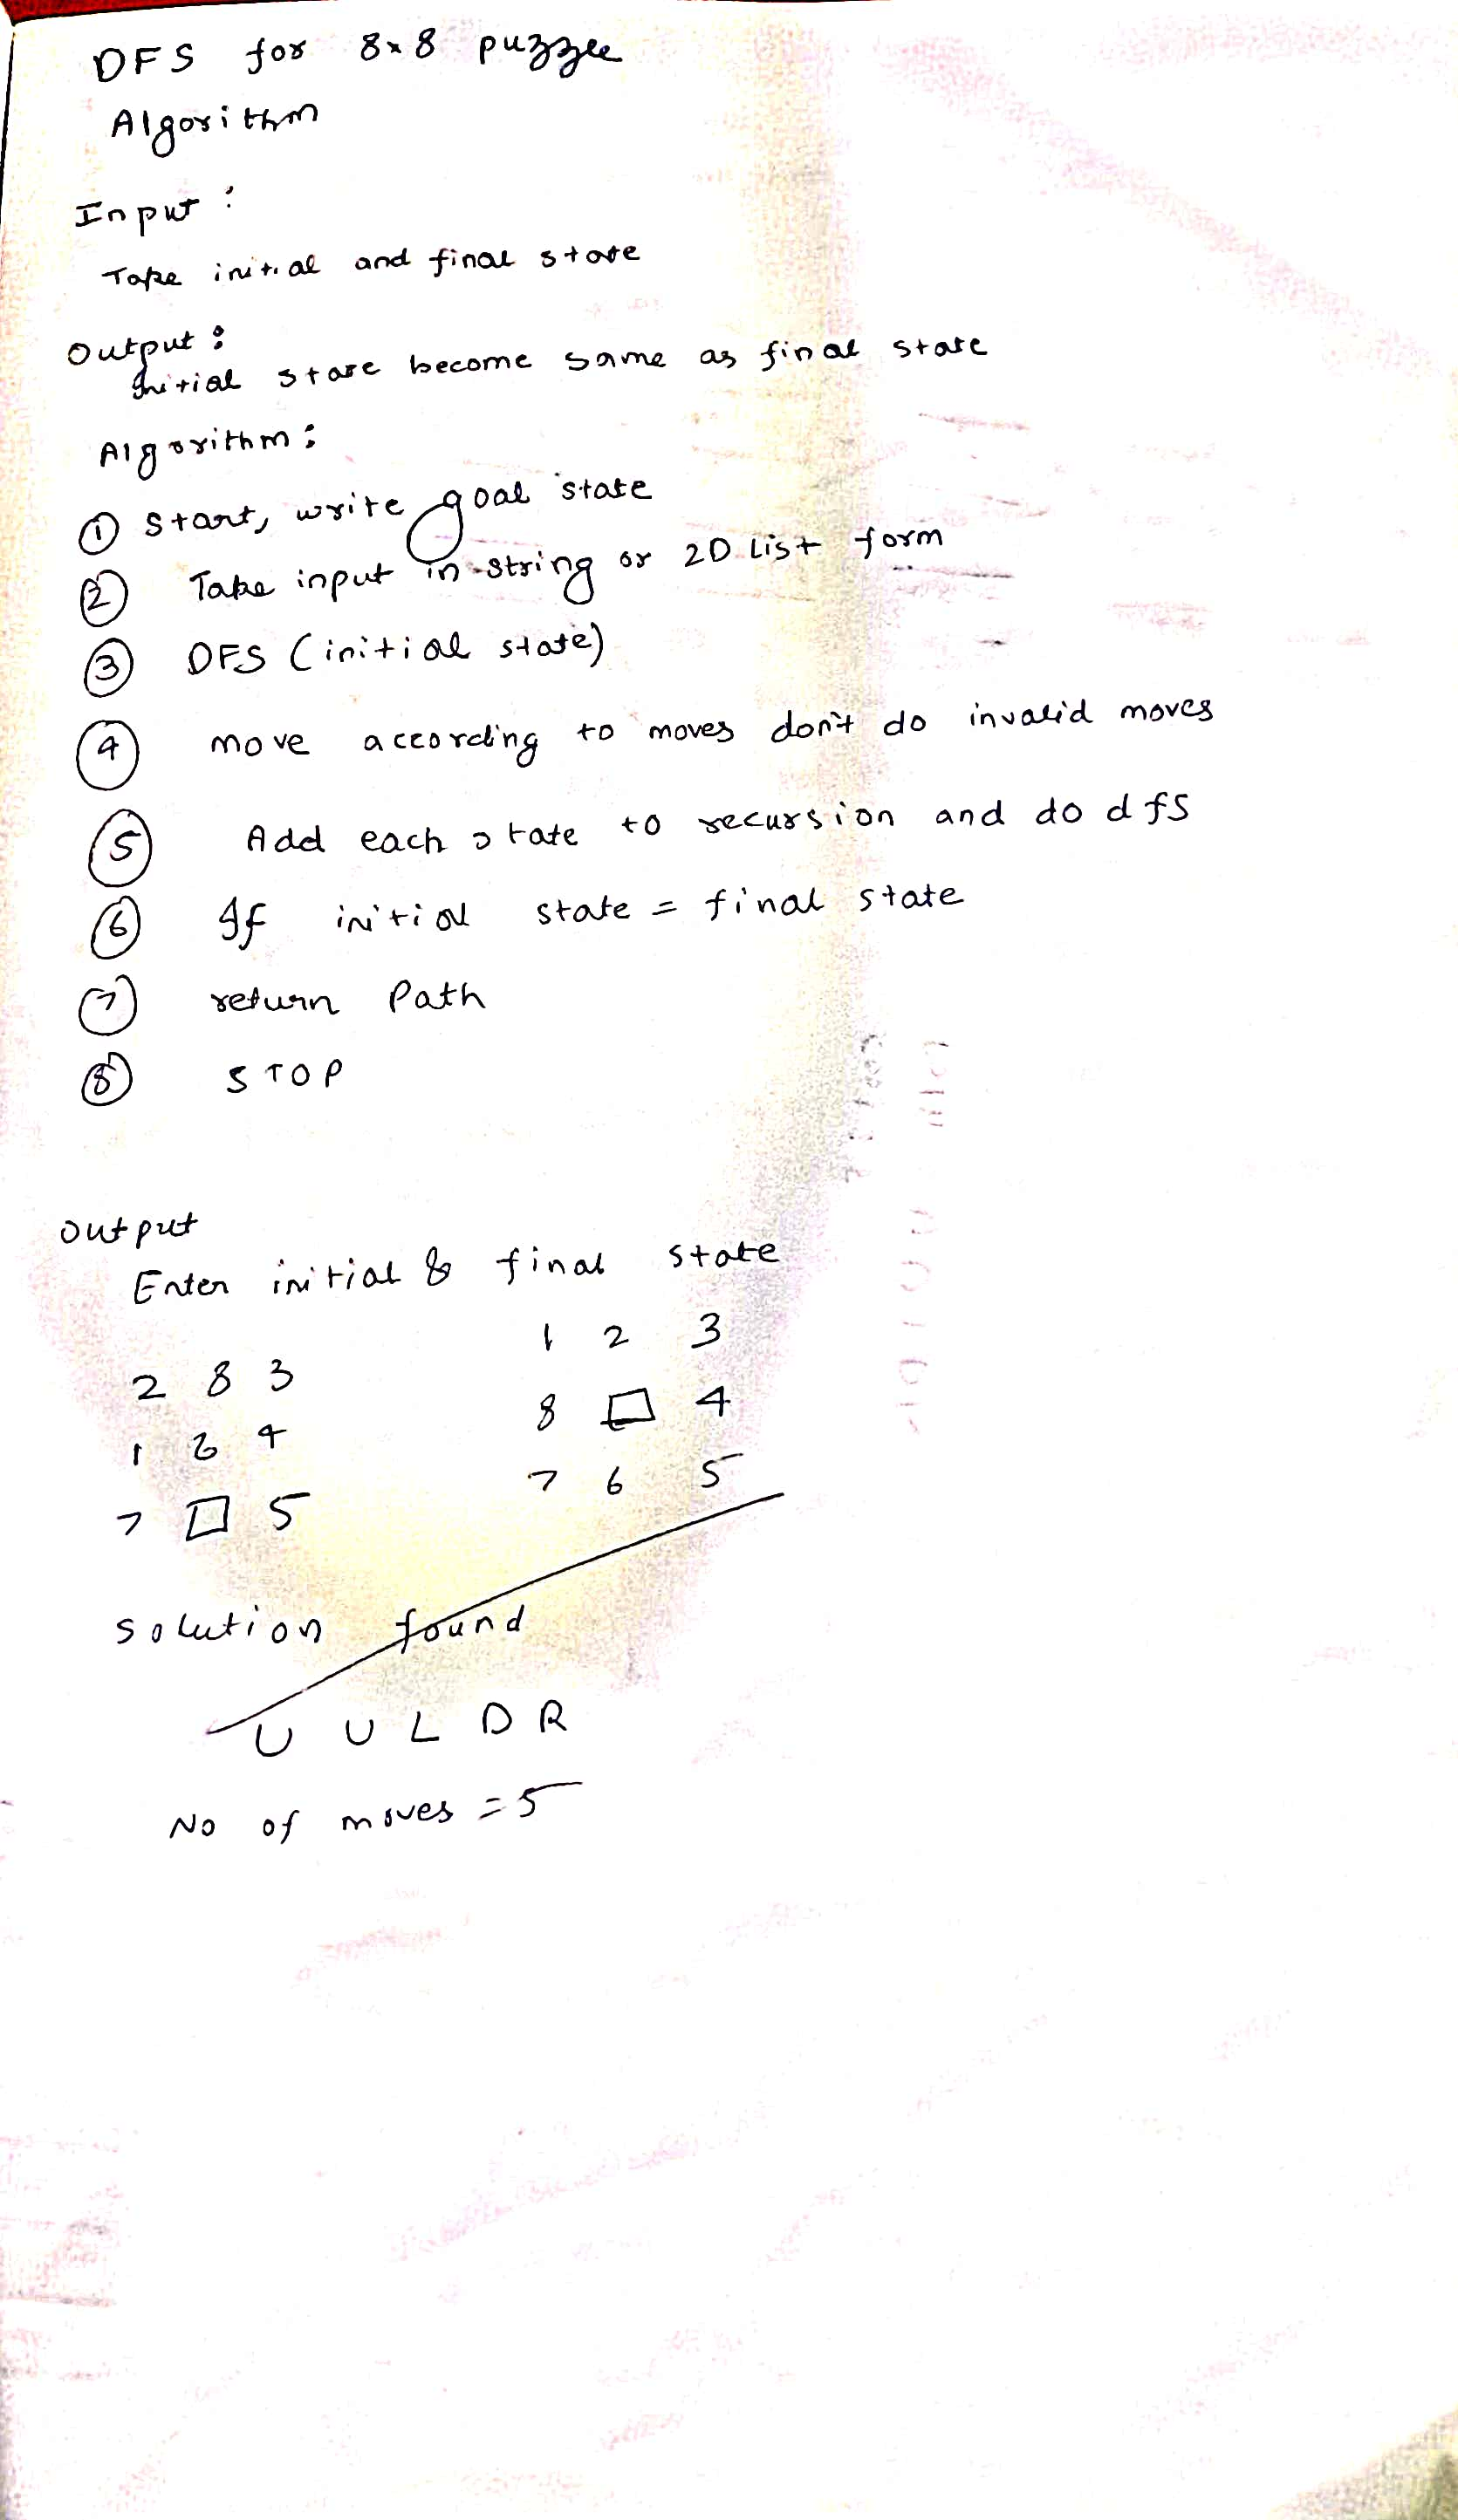 DFS for 8x8 puzzle
Algorithm
Input :
Take initial and final state
Output :
Initial state become same as final state
Algorithm :
① Start, write goal state
② Take input in string or 2D List form
③ DFS (initial state)
④ move according to moves don't do invalid moves
⑤ Add each state to recursion and do dfs
⑥ If initial state = final state
⑦ return Path
⑧ STOP
output
Enter initial & final state
1 2 3
2 8 3
8 □ 4
1 6 4
7 6 5
7 □ 5
solution found
U U L D R
No of moves = 5